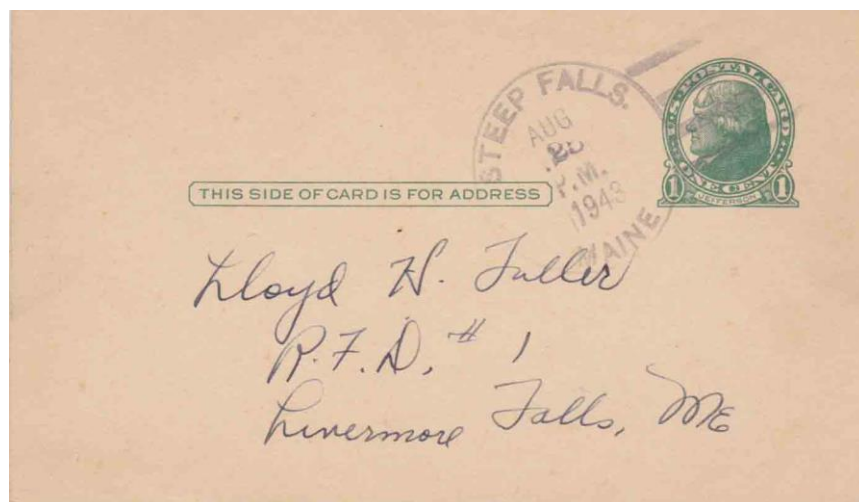 STEEP FALLS.
AUG
P.M.
1943
MAINE
U.S. POSTAL CARD
ONE CENT
1 1
JEFFERSON
THIS SIDE OF CARD IS FOR ADDRESS
Lloyd H. Fuller
R.F.D. # 1
Livermore Falls, ME